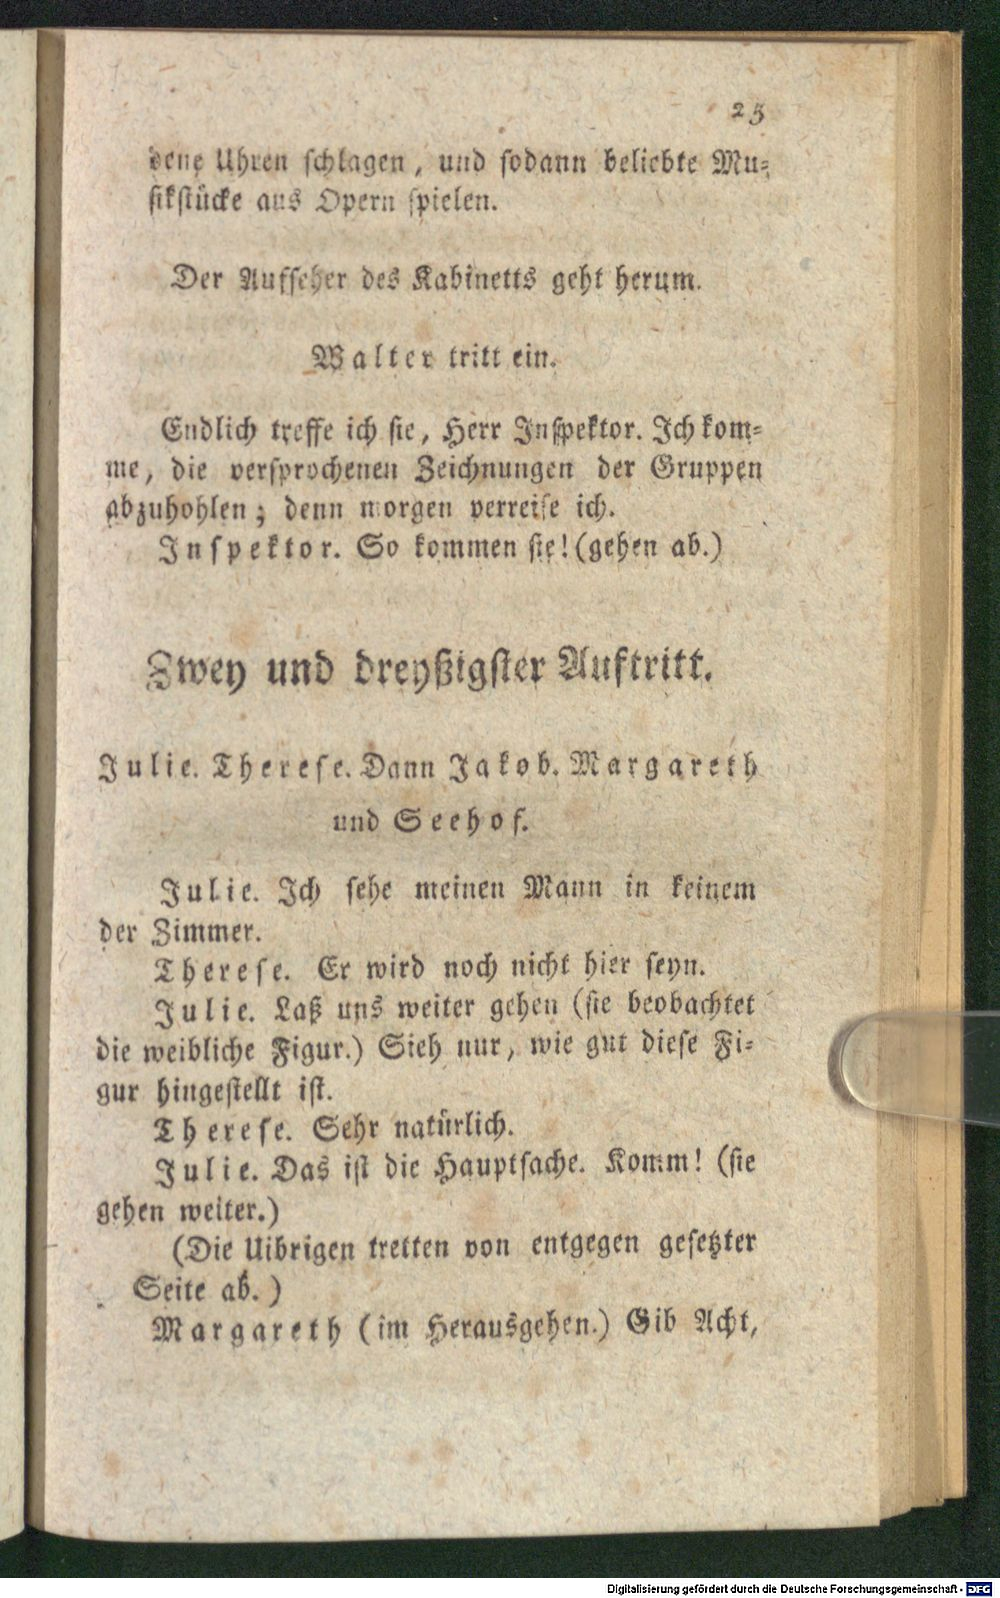 25
dene Uhren schlagen, und sodann beliebte Mu-
sikstücke aus Opern spielen.
Der Aufseher des Kabinetts geht herum.
Walter tritt ein.
Endlich treffe ich sie, Herr Inspektor. Ich kom-
me, die versprochenen Zeichnungen der Gruppen
abzuhohlen; denn morgen verreise ich.
Inspektor. So kommen sie! (gehen ab.)
Zwey und dreyßigster Auftritt.
Julie. Therese. Dann Jakob. Margareth
und Seehof.
Julie. Ich sehe meinen Mann in keinem
der Zimmer.
Therese. Er wird noch nicht hier seyn.
Julie. Laß uns weiter gehen (sie beobachtet
die weibliche Figur.) Sieh nur, wie gut diese Fi-
gur hingestellt ist.
Therese. Sehr natürlich.
Julie. Das ist die Hauptsache. Komm! (sie
gehen weiter.)
(Die Uibrigen tretten von entgegen gesetzter
Seite ab.)
Margareth (im Herausgehen.) Gib Acht,
Digitalisierung gefördert durch die Deutsche Forschungsgemeinschaft - DFG